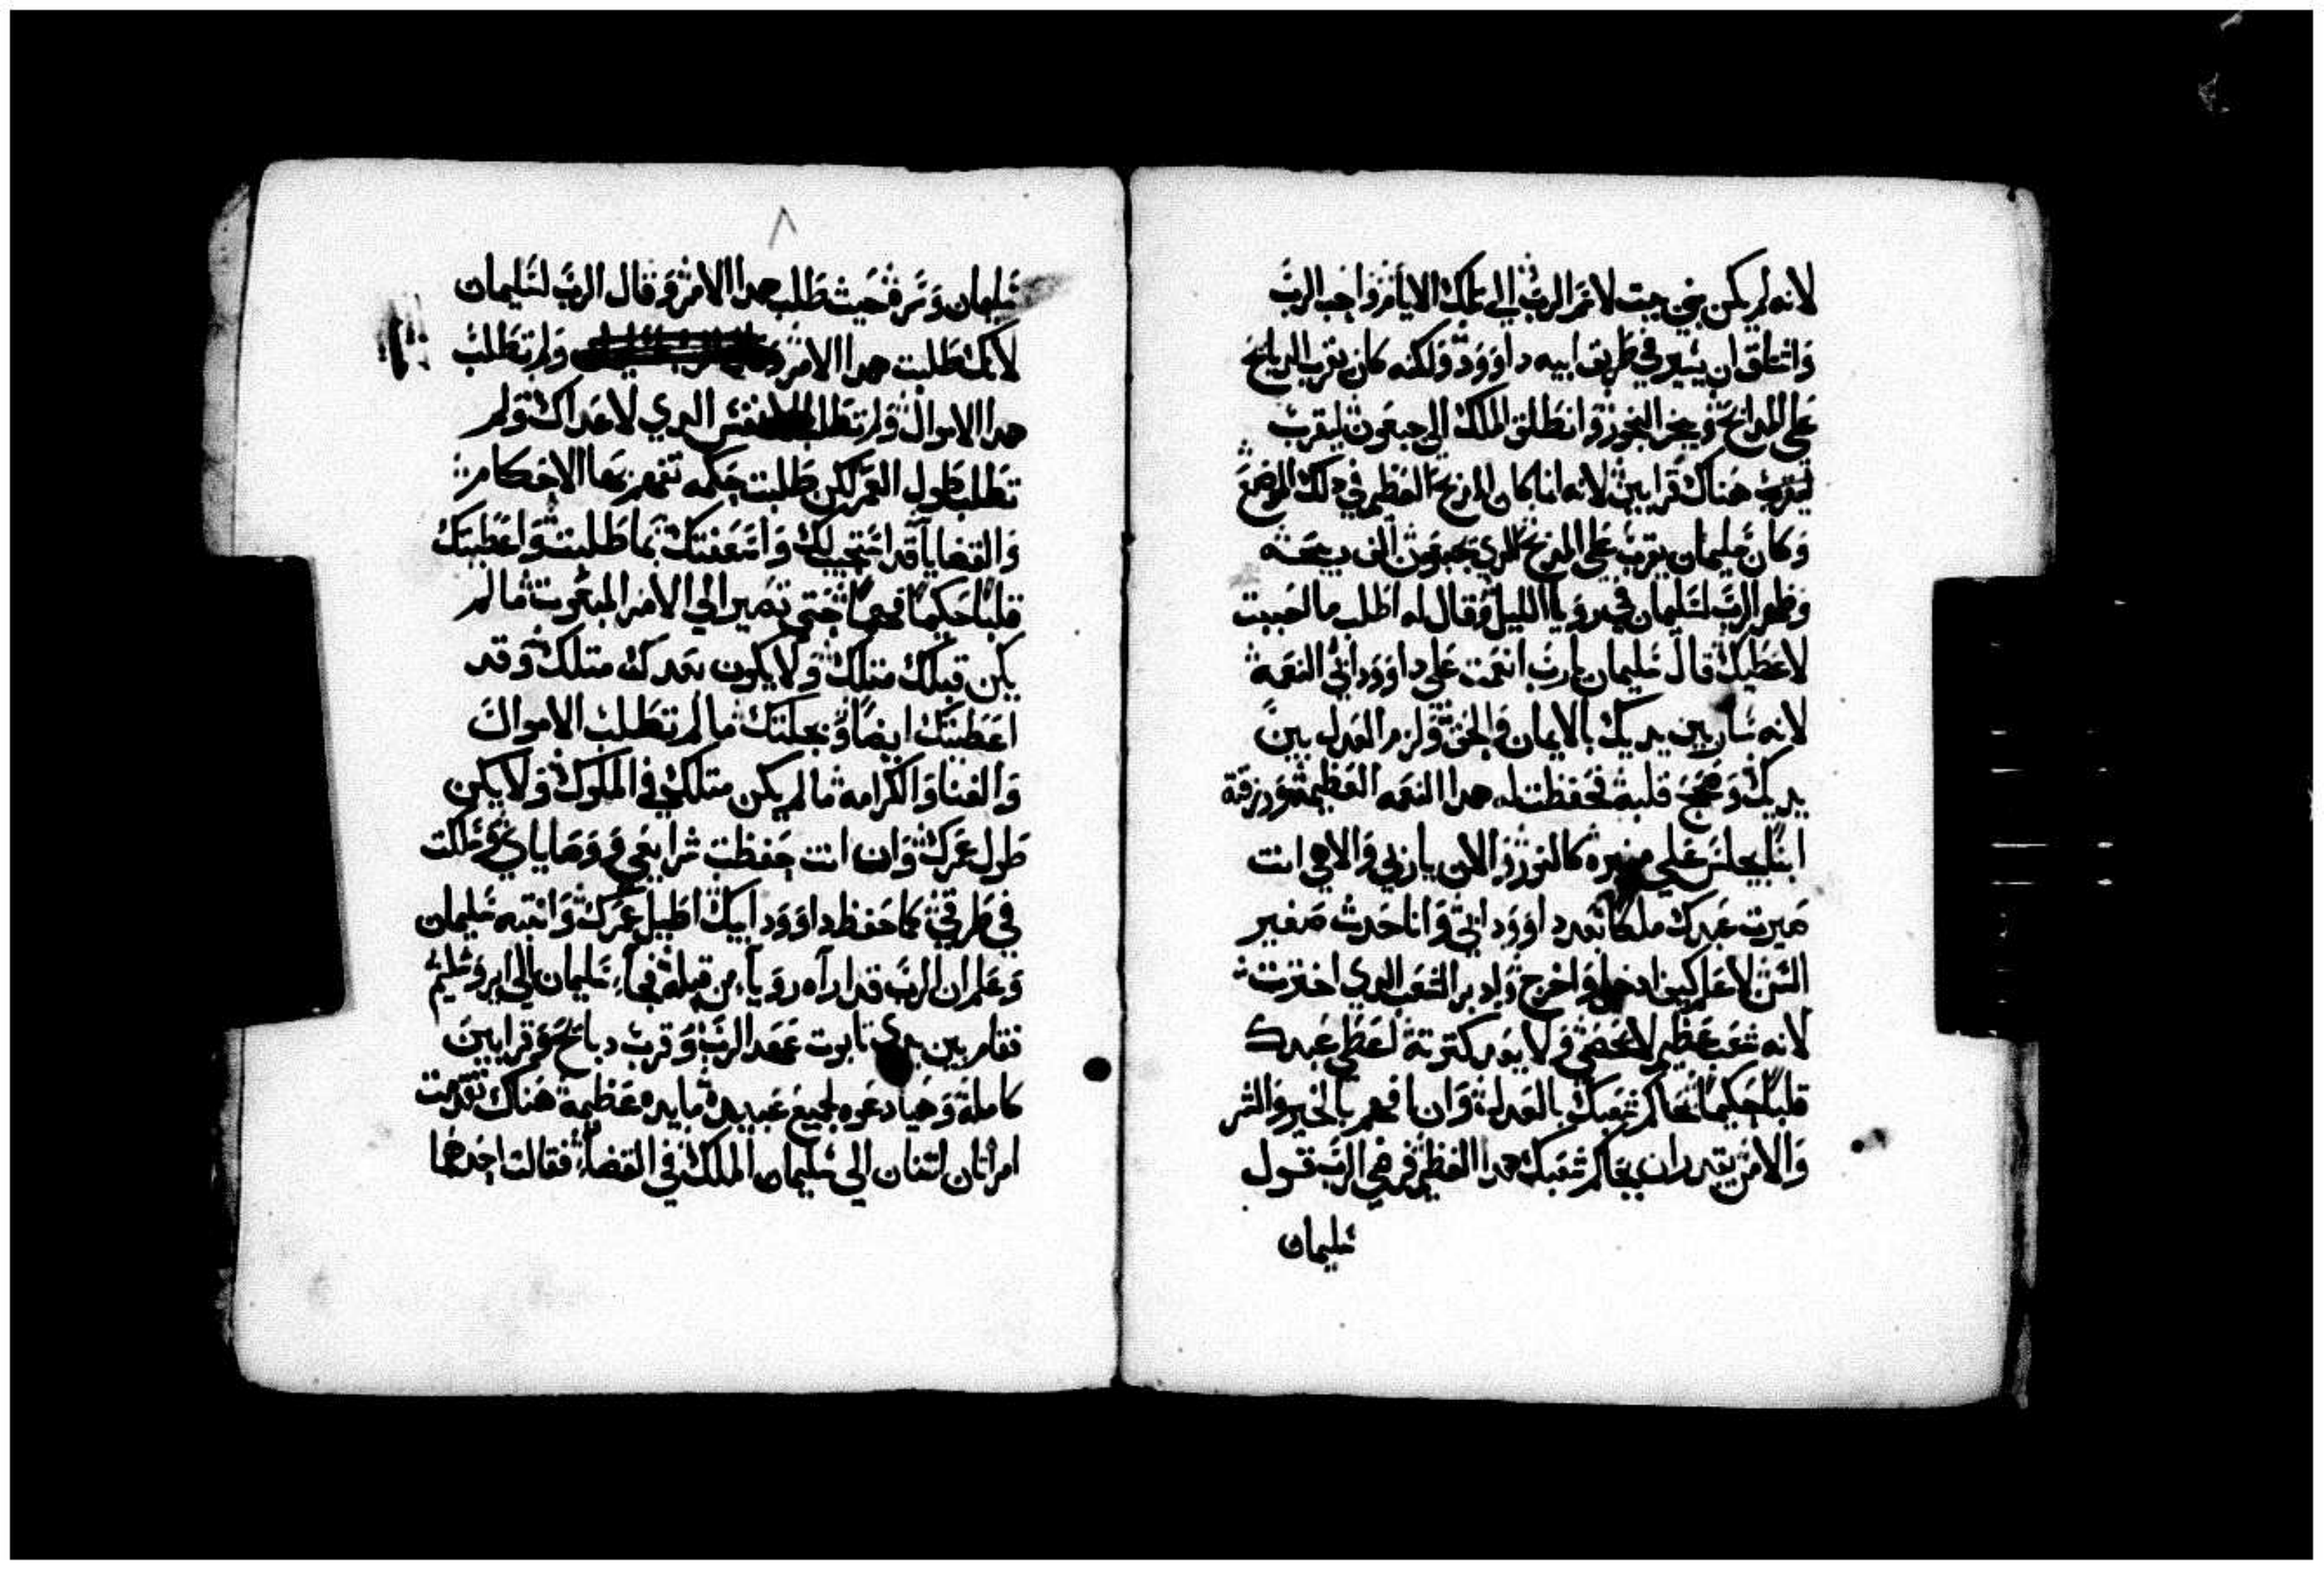 لانه لم يكن بني بيت لاسم الرب الي تلك الايام واحب الرب
وانطلق ان يسير في طريق ابيه داوود ولكنه كان يقرب الدبايح
علي المدابح ويبخر البخور وانطلق الملك الي جبعون ليقرب
ليقرب هناك قرابين لانه انما كان المدبح العظيم في دلك الموضع
وكان سليمان يقرب علي المدبح الدي بجبعون الف دبيحه
وظهر الرب لسليمان في رويا الليل وقال له اطلب ما احببت
لاعطيك قال سليمان يارب انعمت علي داوود ابي النعمه
لانه سار بين يديك بالايمان والحق ولزم العدل بين
يديك وصحح قلبه فحفظت له هدا النعمه العظيمه ورزقته
ابنا يجلس علي منبره كالنور والان يا ربي والاهي انت
صيرت عبدك ملكا بعد داوود ابي وانا حدث صغير
السن لا اعلم كيف ادخل واخرج وادبر الشعب الدي اخترت
لانه شعب عظيم لا يحصي ولا يعد كترته لعطي عبدك
قلبا حكيما يحاكم شعبك بالعدل وان افهم بالخير والشر
والا من يقدر ان يحاكم شعبك هدا العظيم فرضي الرب قول
سليمان
٨
سليمان وسر حيث طلب هدا الامر وقال الرب لسليمان
لانك طلبت هدا الامر ولم تطلب
هدا الاموال ولم تطلب نفس الدي لاعداك ولم
تطلب طول العمر لكن طلبت حكمه تفهم بها الاحكام
والقضايا قد استجيب لك واسعفتك بما طلبت واعطيتك
قلبا حكيما فهما حتي تصير الي الامر المبعوت ما لم
يكن قبلك متلك ولا يكون بعدك متلك وقد
اعطيتك ايضا وبجلتك ما لم تطلب الاموال
والغنا والكرامه ما لم يكن متلك في الملوك ولا يكن
طول عمرك وان انت حفظت شرايعي ووصاياي وسلكت
في طرقي كما حفظ داوود ابيك اطيل عمرك وانتبه سليمان
وعلم ان الرب قد اراه رويا من قبله فجاء سليمان الي ايروشليم
فقام بين يدي تابوت عهد الرب وقرب دبايح وقرابين
كاملة وهيا دعوه لجميع عبيده مايده عظيمة هناك تقدمت
امراتان اتنتان الي سليمان الملك في القضاء فقالت احدهما